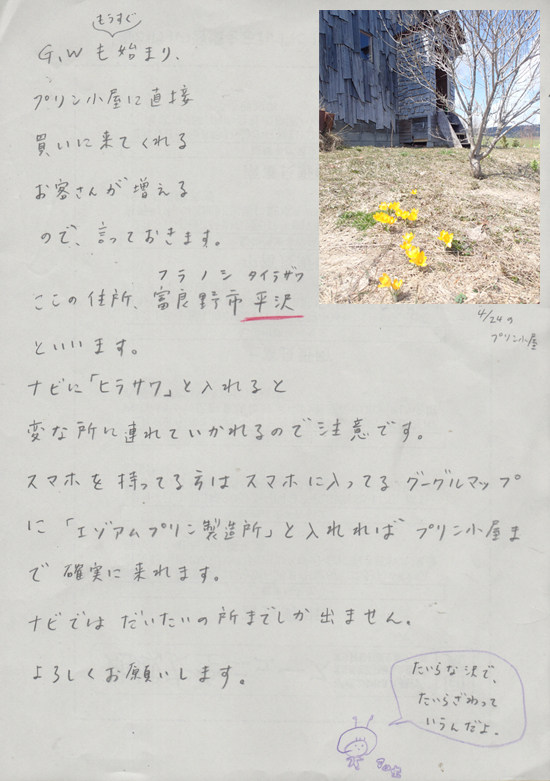 もうすぐ
G.Wも始まり、
プリン小屋に直接
買いに来てくれる
お客さんが増える
ので、言っておきます。
フラノシ タイラザワ
ここの住所、富良野市平沢
といいます。
ナビに「ヒラサワ」と入れると
変な所に連れていかれるので注意です。
スマホを持ってる方はスマホに入ってるグーグルマップ
に「エゾアムプリン製造所」と入れればプリン小屋ま
で確実に来れます。
ナビではだいたいの所までしか出ません。
よろしくお願いします。
4/24の
プリン小屋
たいらな沢で、
たいらざわって
いうんだよ。